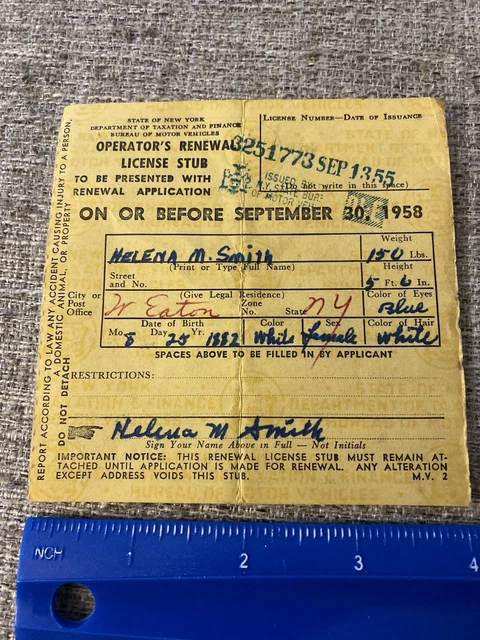 STATE OF NEW YORK
DEPARTMENT OF TAXATION AND FINANCE
BUREAU OF MOTOR VEHICLES
OPERATOR'S RENEWAL
LICENSE STUB
TO BE PRESENTED WITH
RENEWAL APPLICATION
LICENSE NUMBER—DATE OF ISSUANCE
3251773 SEP 13 55
ISSUED BY
N.Y. STATE BUR.
OF MOTOR VEH.
(Do not write in this space)
ON OR BEFORE SEPTEMBER 30, 1958
HELENA M. Smith
(Print or Type Full Name)
Weight
150 Lbs.
Street
and No.
Height
5 Ft. 6 In.
City or
Post
Office
W Eaton
(Give Legal Residence)
Zone
No.
State NY
Color of Eyes
Blue
Date of Birth
Mo. 8 Day 25 Yr. 1882
Color
White
Sex
female
Color of Hair
White
SPACES ABOVE TO BE FILLED IN BY APPLICANT
RESTRICTIONS:
Helena M Smith
Sign Your Name Above in Full — Not Initials
IMPORTANT NOTICE: THIS RENEWAL LICENSE STUB MUST REMAIN AT-
TACHED UNTIL APPLICATION IS MADE FOR RENEWAL. ANY ALTERATION
EXCEPT ADDRESS VOIDS THIS STUB.
M.V. 2
REPORT ACCORDING TO LAW ANY ACCIDENT CAUSING INJURY TO A PERSON,
A DOMESTIC ANIMAL, OR PROPERTY
DO NOT DETACH
INCH 1 2 3 4